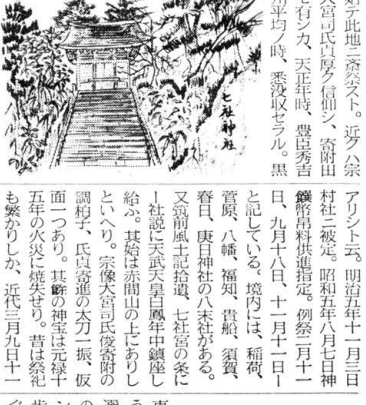 始テ此地ニ斎祭スト。近ク八宗
大宮司氏貞厚ク信仰シ、寄附田
モ有シカ、天正年時、豊臣秀吉
平均ノ時、悉没収セラル。黒
七社神社
アリシト云。明治五年十一月三日
村社ニ被定。昭和五年八月七日神
饌幣帛料供進指定。例祭二月十一
日、九月十八日、十一月十一日ー
と記している。境内には、稲荷、
菅原、八幡、福知、貴船、須賀、
春日、庚日神社の八末社がある。
又筑前風土記拾遺、七社宮の条に
ー社説に天武天皇白鳳年中鎮座し
給ふ。其始は赤間山の上にありし
といへり。宗像大宮司氏俊寄附の
調柏子、氏貞寄進の太刀一振、仮
面一つあり。其餘の神宝は元禄十
五年の火災に焼失せり。昔は祭祀
も繁かりしか、近代三月九日十一